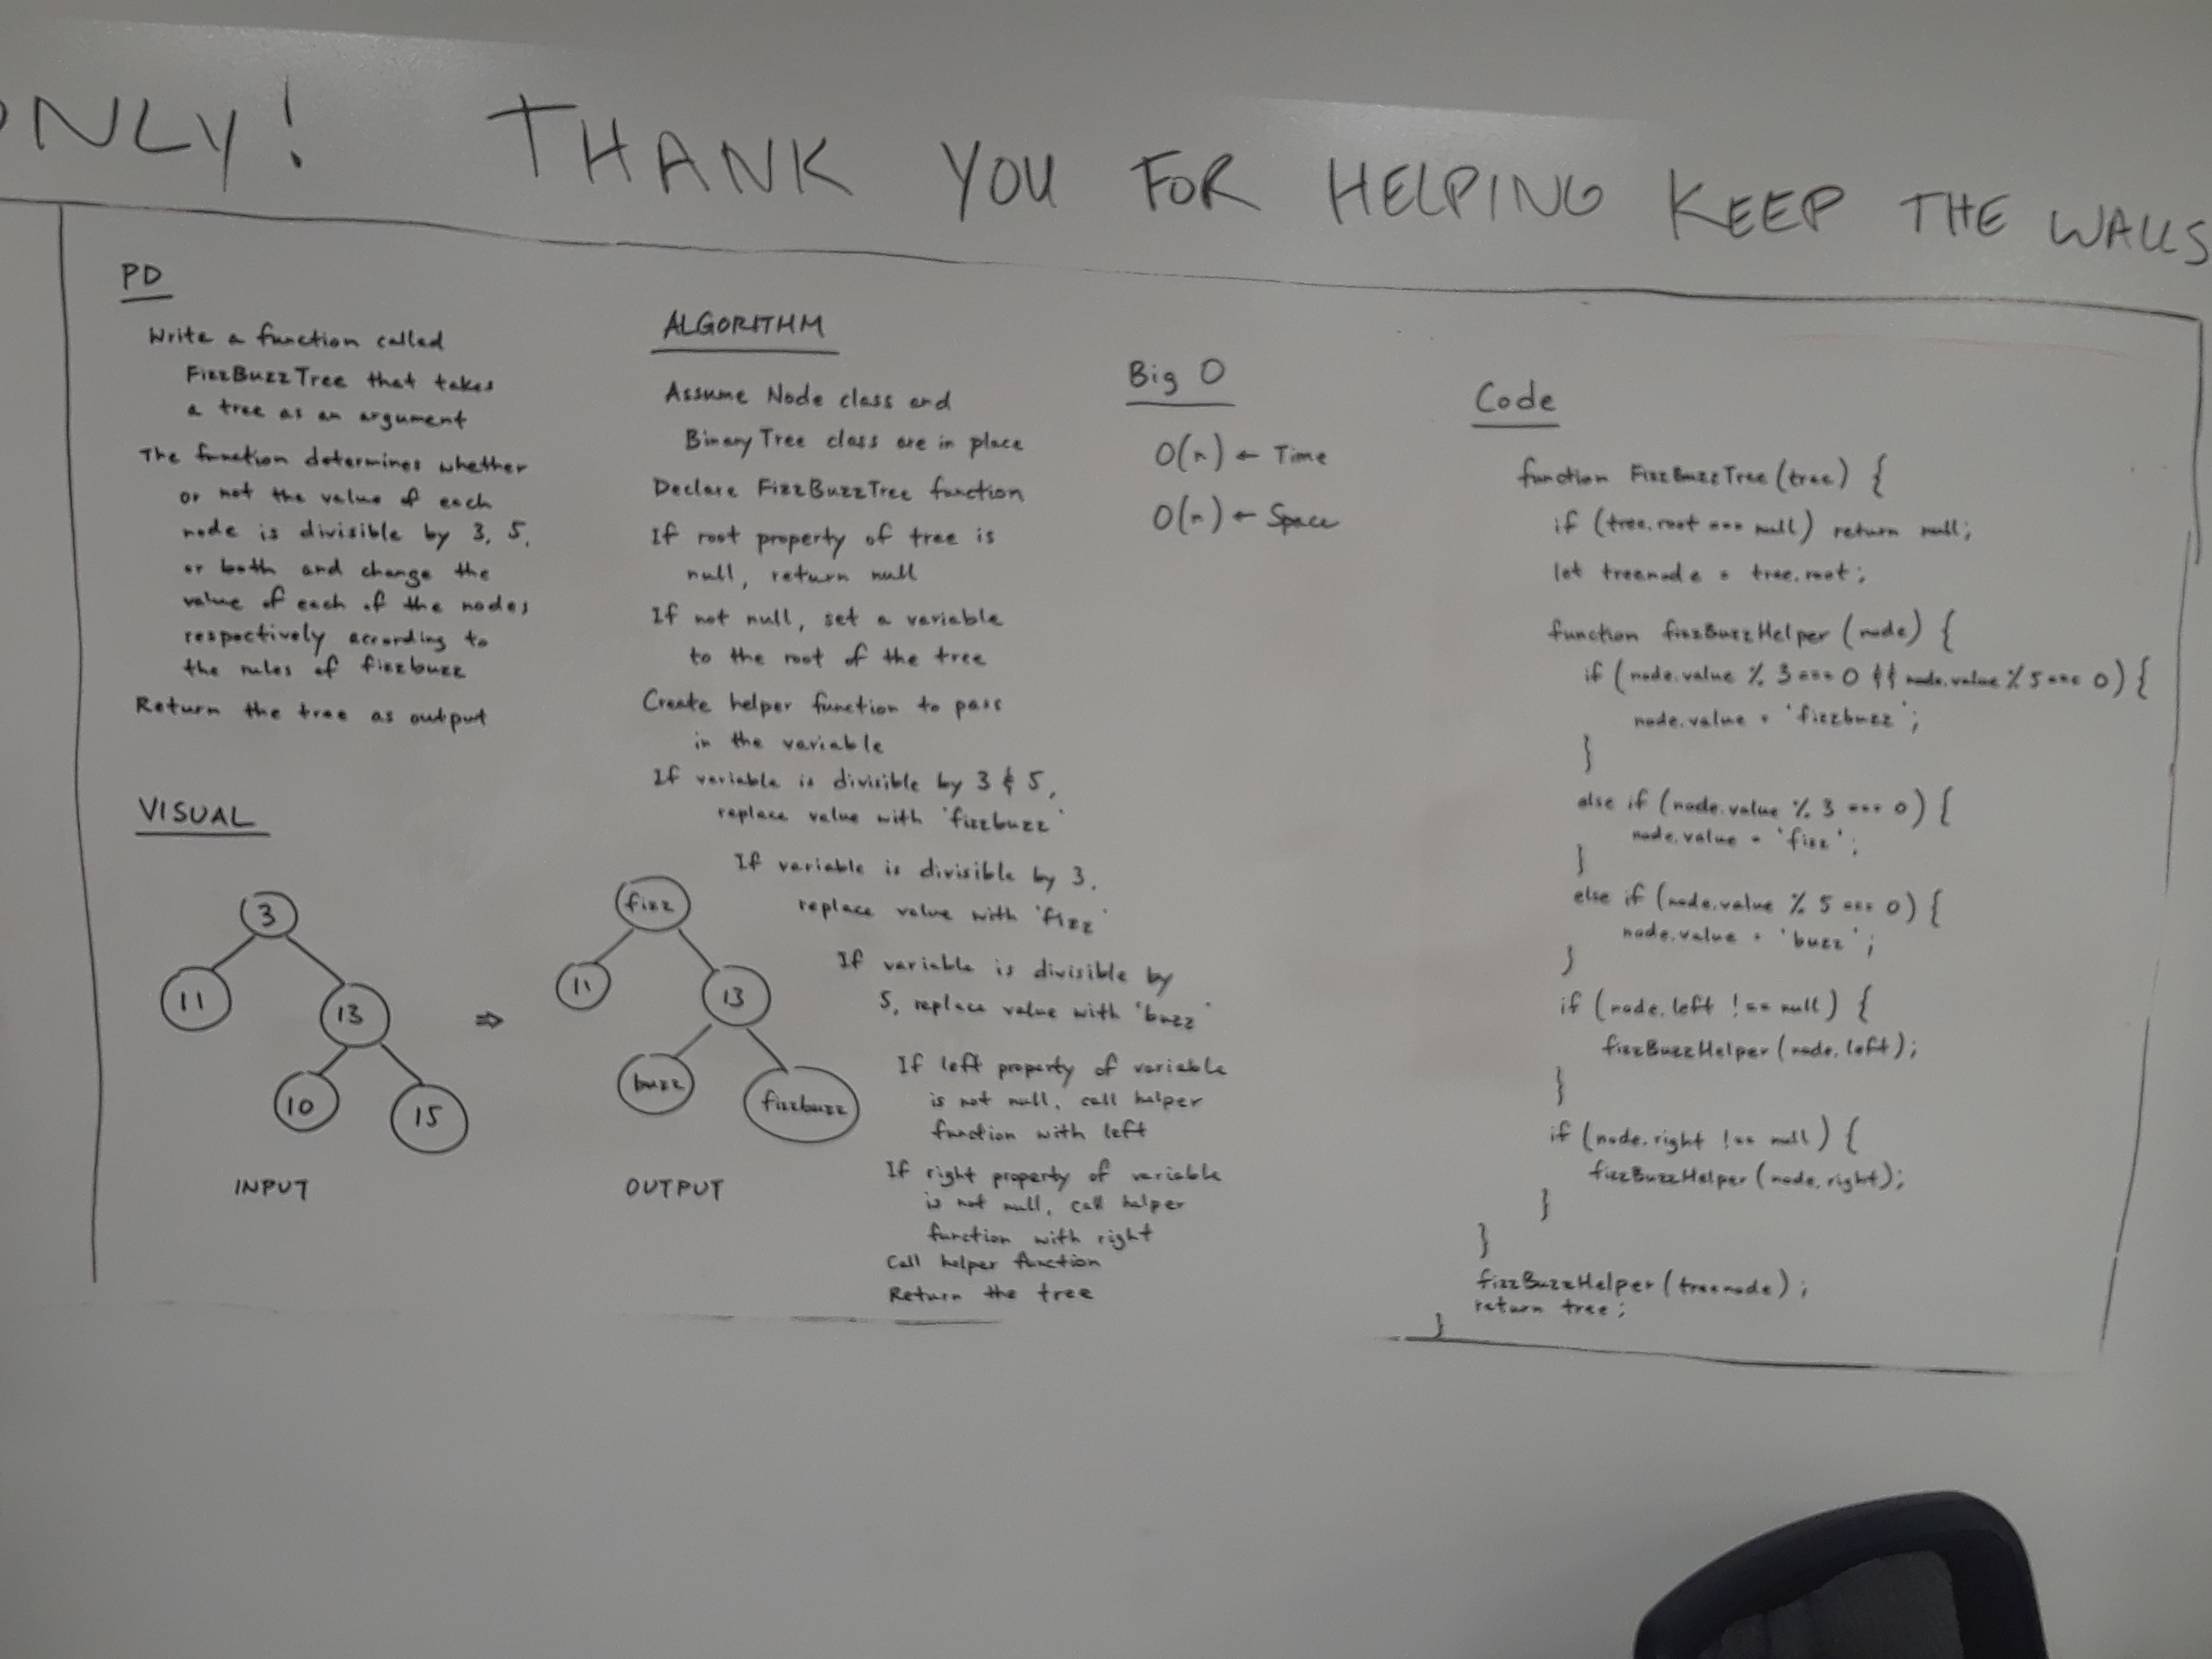 ONLY! THANK YOU FOR HELPING KEEP THE WALLS
PD
Write a function called
FizzBuzzTree that takes
a tree as an argument
The function determines whether
or not the value of each
node is divisible by 3, 5,
or both and change the
value of each of the nodes
respectively according to
the rules of fizzbuzz
Return the tree as output
VISUAL
3
11
13
10
15
INPUT
⇒
fizz
11
13
buzz
fizzbuzz
OUTPUT
ALGORITHM
Assume Node class and
Binary Tree class are in place
Declare FizzBuzzTree function
If root property of tree is
null, return null
If not null, set a variable
to the root of the tree
Create helper function to pass
in the variable
If variable is divisible by 3 & 5,
replace value with 'fizzbuzz'
If variable is divisible by 3,
replace value with 'fizz'
If variable is divisible by
5, replace value with 'buzz'
If left property of variable
is not null, call helper
function with left
If right property of variable
is not null, call helper
function with right
Call helper function
Return the tree
Big O
O(n) ← Time
O(n) ← Space
Code
function FizzBuzzTree (tree) {
if (tree.root === null) return null;
let treenode = tree.root;
function fizzBuzzHelper (node) {
if (node.value % 3 === 0 && node.value % 5 === 0) {
node.value = 'fizzbuzz';
}
else if (node.value % 3 === 0) {
node.value = 'fizz';
}
else if (node.value % 5 === 0) {
node.value = 'buzz';
}
if (node.left !== null) {
fizzBuzzHelper (node.left);
}
if (node.right !== null) {
fizzBuzzHelper (node.right);
}
}
fizzBuzzHelper (treenode);
return tree;
}